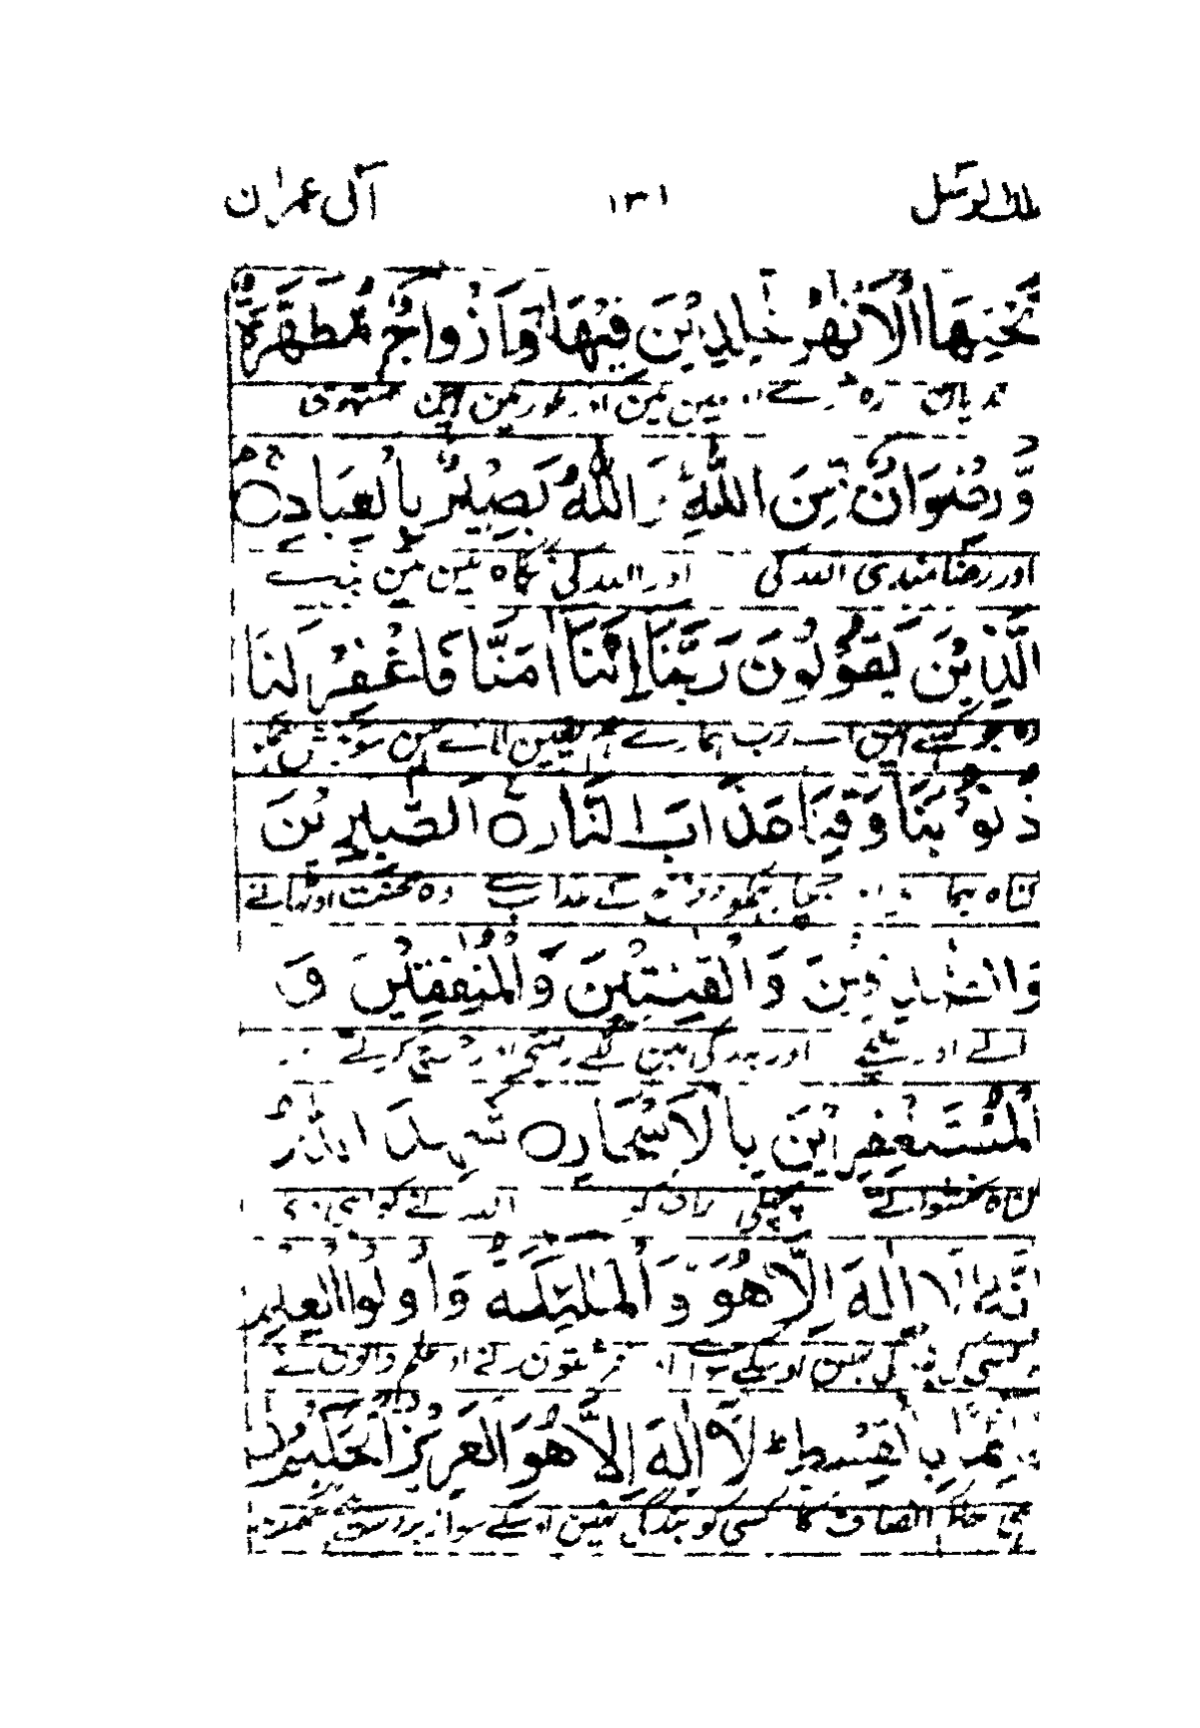 تلك الرسل ١٣١ آل عمران
تَحْتِهَا الْاَنْهٰرُ خٰلِدِيْنَ فِيْهَا وَاَزْوَاجٌ مُّطَهَّرَةٌ
ندیاں رہ میں اور عورتیں ہیں ستھری
وَّرِضْوَانٌ مِّنَ اللّٰهِ وَاللّٰهُ بَصِيْرٌ بِالْعِبَادِ
اور رضامندی اللہ کی اور اللہ کی نگاہ میں ہیں بندے
اَلَّذِيْنَ يَقُوْلُوْنَ رَبَّنَا اِنَّنَا اٰمَنَّا فَاغْفِرْ لَنَا
وہ جو کہتے ہیں اے رب ہمارے ہم یقین لائے ہیں سو بخش ہمکو
ذُنُوْبَنَا وَقِنَا عَذَابَ النَّارِ اَلصّٰبِرِيْنَ
گناہ ہمارے بچا ہمکو دوزخ کے عذاب سے وہ محنت اوٹھانے
وَالصّٰدِقِيْنَ وَالْقٰنِتِيْنَ وَالْمُنْفِقِيْنَ وَ
والے اور سچے اور بندگی میں لگے رہتے اور خرچ کرتے
الْمُسْتَغْفِرِيْنَ بِالْاَسْحَارِ شَهِدَ اللّٰهُ
گناہ بخشواتے پچھلی رات کو اللہ نے گواہی دی
اَنَّهٗ لَا اِلٰهَ اِلَّا هُوَ وَالْمَلٰئِكَةُ وَاُولُوا الْعِلْمِ
کسی کی بندگی نہیں اوسکے سوا اور فرشتوں نے اور علم والوں نے
قَائِمًا بِالْقِسْطِ لَا اِلٰهَ اِلَّا هُوَ الْعَزِيْزُ الْحَكِيْمُ
وہی حاکم انصاف کا کسی کو بندگی نہیں اوسکے سوا زبردست ہے حکمت